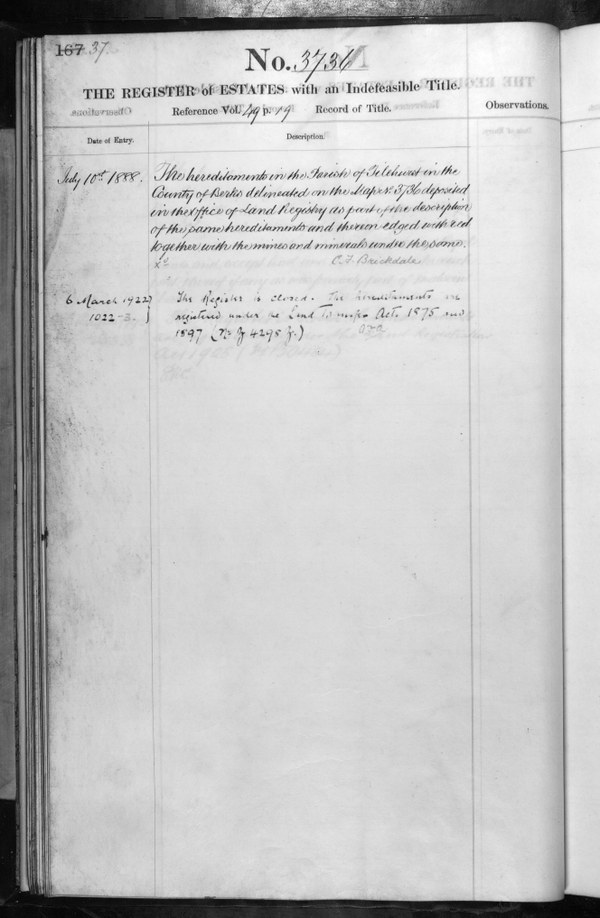 167 37.
No. 3736
THE REGISTER of ESTATES with an Indefeasible Title.
Reference Vol. 49 p. 19 Record of Title.
Observations.
Date of Entry.
Description.
July 10th 1888.
The hereditaments in the Parish of Tilehurst in the
County of Berks delineated on the Map No. 3736 deposited
in the Office of Land Registry as part of the description
of the same hereditaments and thereon edged with red
together with the mines and minerals under the same.
C. F. Brickdale
6 March 1922
1022-3.
The Register is closed. The hereditaments are
registered under the Land Transfer Acts 1875 and
1897 (No 4298)